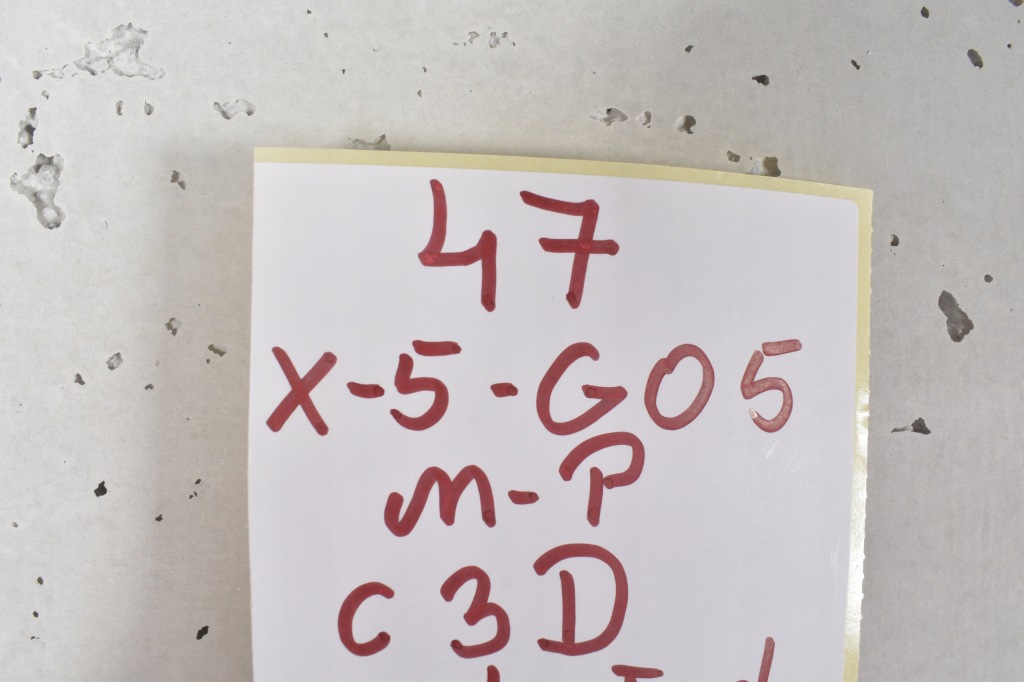 47
X-5-G05
M-P
C3D